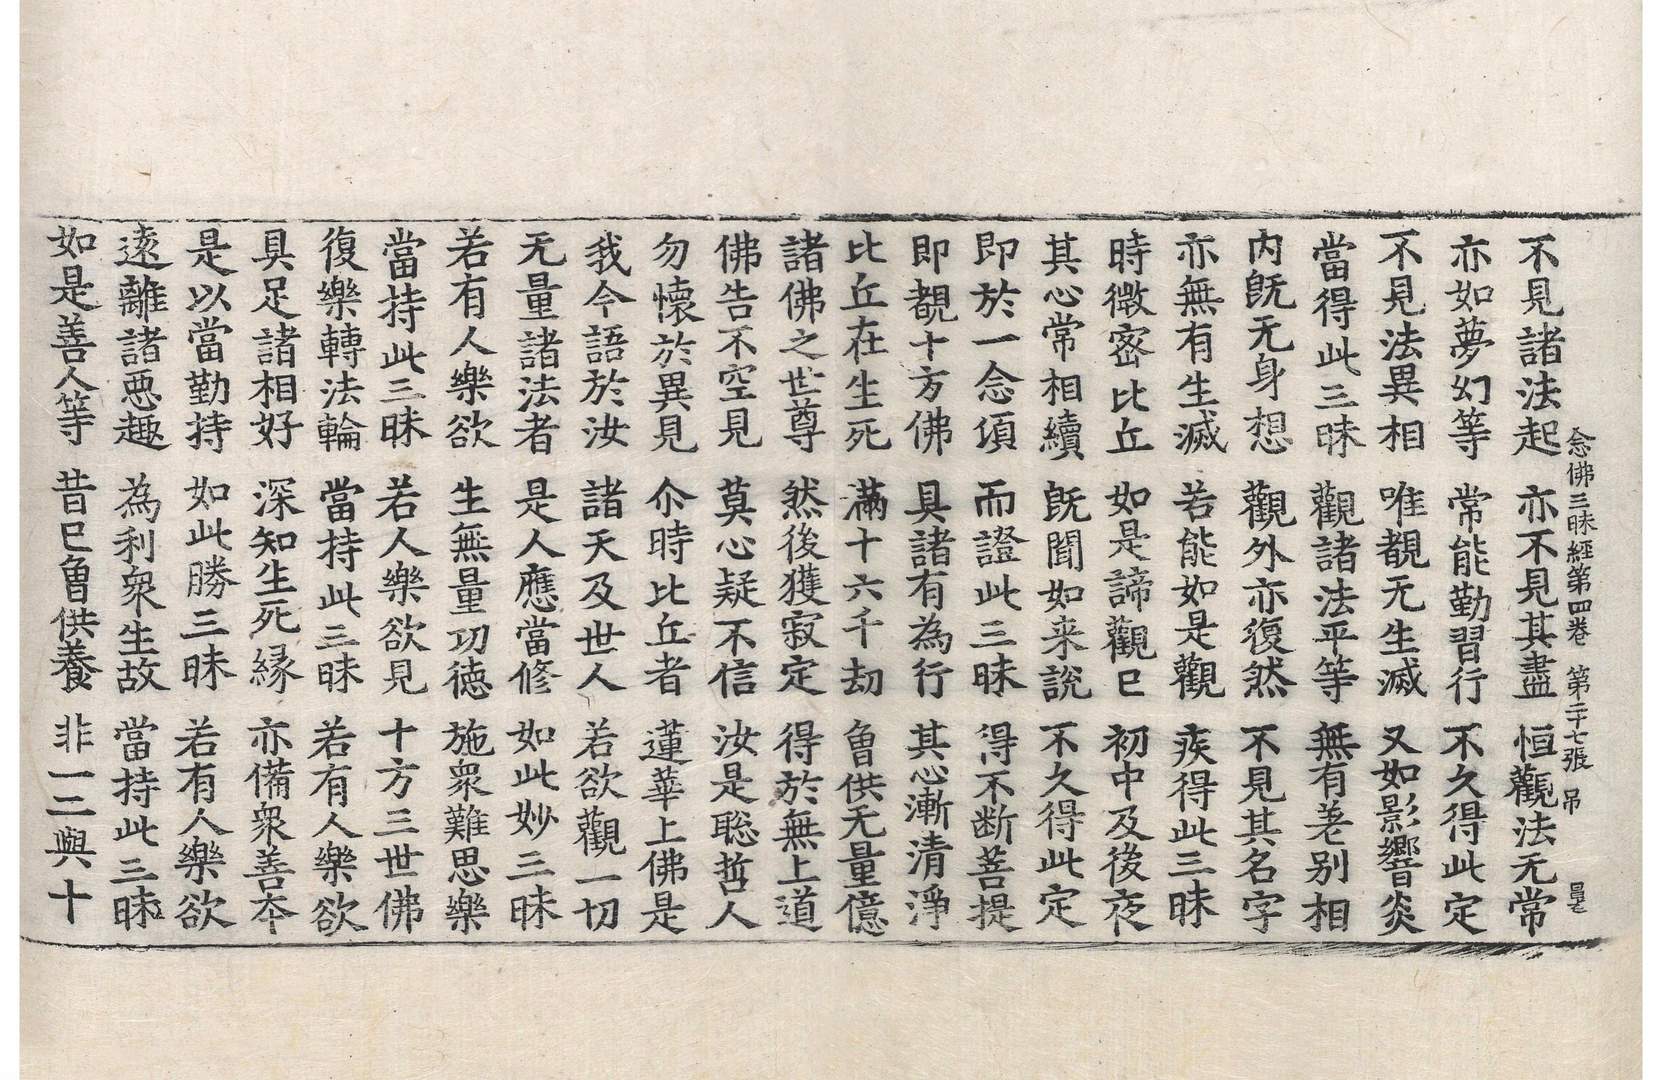 念佛三昧經第四卷 第二十七張 吊
不見諸法起 亦不見其盡 恒觀法无常
亦如夢幻等 常能勤習行 不久得此定
不見法異相 唯覩无生滅 又如影響炎
當得此三昧 觀諸法平等 無有差别相
内既无身想 觀外亦復然 不見其名字
亦無有生滅 若能如是觀 疾得此三昧
時微密比丘 如是諦觀已 初中及後夜
其心常相續 既聞如来說 不久得此定
即於一念頃 而證此三昧 得不断菩提
即覩十方佛 具諸有為行 其心漸清淨
比丘在生死 滿十六千劫 曾供无量億
諸佛之世尊 然後獲寂定 得於無上道
佛告不空見 莫心疑不信 汝是聡哲人
勿懷於異見 尒時比丘者 蓮華上佛是
我今語於汝 諸天及世人 若欲觀一切
无量諸法者 是人應當修 如此妙三昧
若有人樂欲 生無量功徳 施衆難思樂
當持此三昧 若人樂欲見 十方三世佛
復樂轉法輪 當持此三昧 若有人樂欲
具足諸相好 深知生死縁 亦備衆善夲
是以當勤持 如此勝三昧 若有人樂欲
遠離諸悪趣 為利衆生故 當持此三昧
如是善人等 昔已曾供養 非一二與十